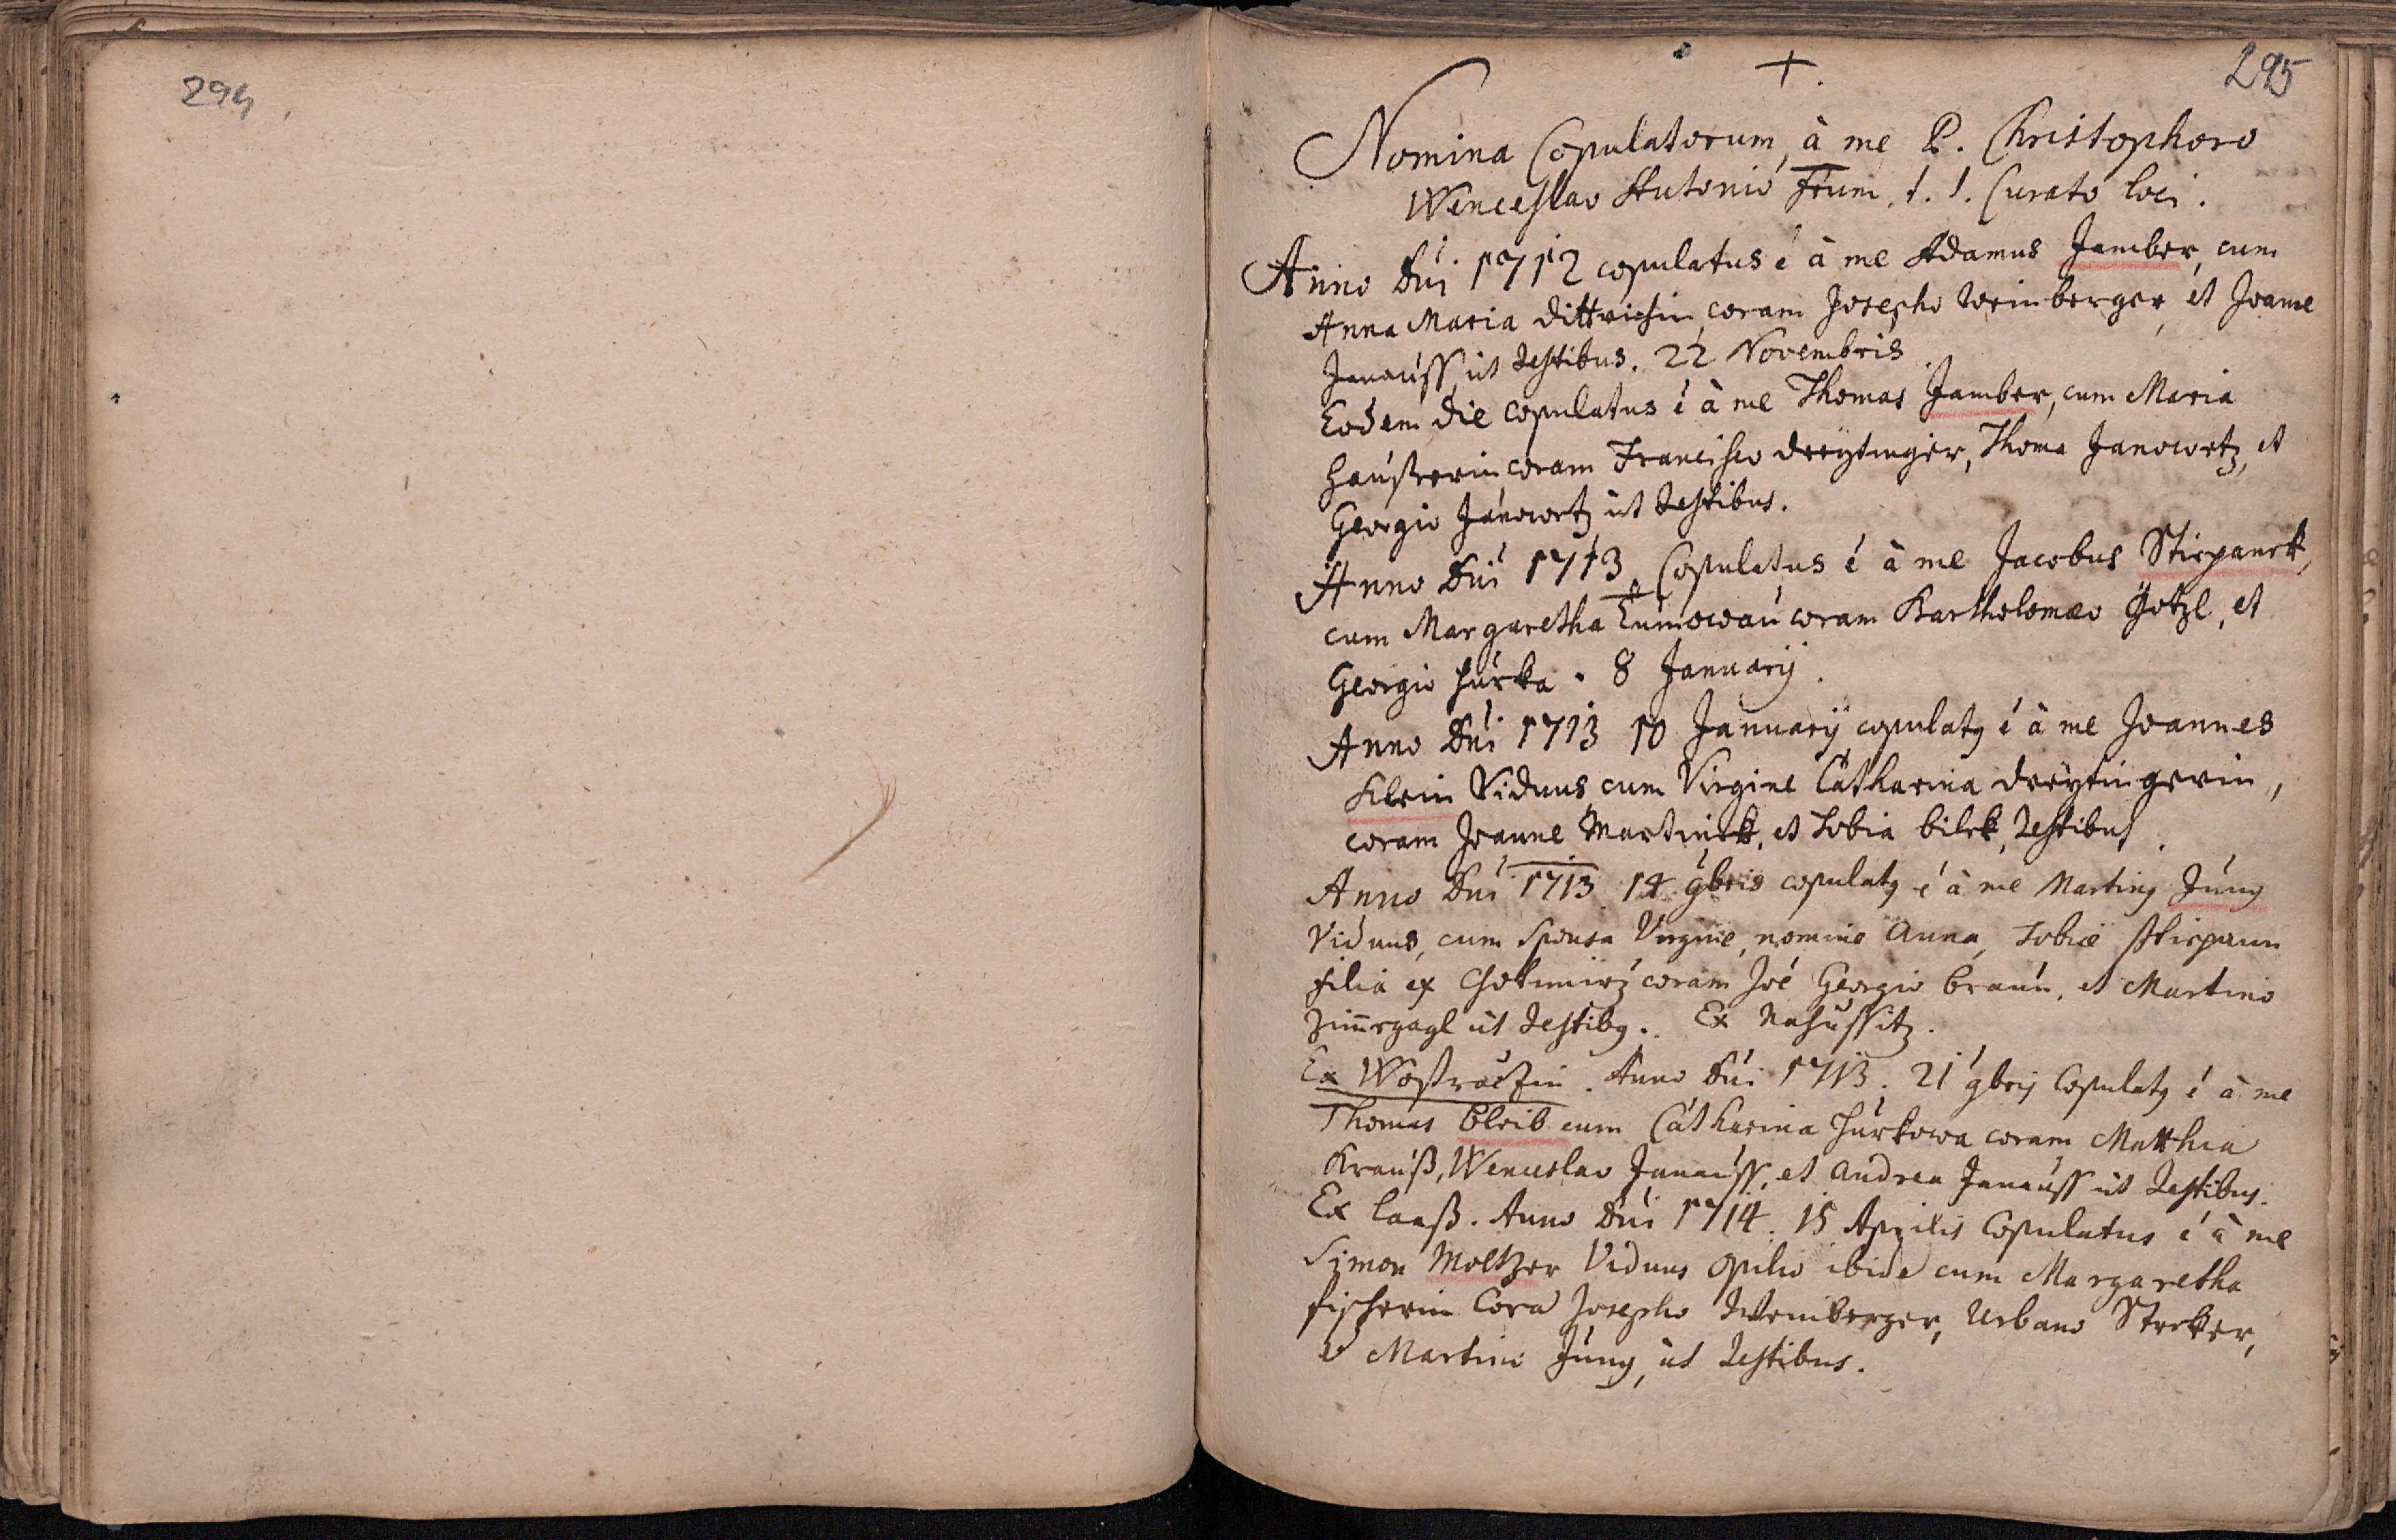 294
295
+.
Nomina Copulatorum, à me P. Christophoro
Wenceslao Antonio Frum. t. t. Curato loci.
Anno Dni 1712 copulatus é à me Adamus Jamber, cum
Anna Maria Dittrichin, coram Josepho Weinberger, et Joanne
Janauss, ut testibus. 22 Novembris
Eodem die copulatus é à me Thomas Jamber, cum Maria
Haußerin coram Francisco Dreytinger, Thoma Janowetz, et
Georgio Janowetz ut testibus.
Anno Dni 1713. Copulatus é à me Jacobus Stiepanek,
cum Margaretha coram Bartholomæo Götzl, et
Georgio Hurka. 8 Januarij.
Anno Dni 1713 10 Januarij copulatq é à me Joannes
Klein Viduus, cum Virgine Catharina Dreytingerin,
coram Joanne Martinek, et Tobia bilek, testibus.
Anno Dni 1713. 14. 9bris copulatq é à me Martinq Jung
Viduus, cum Sponsa Virgine, nomine Anna, Tobiæ Stiepann
filia ex Chotimirz coram Joé Georgio Braun, et Martino
Zimrzagl ut testibq. Ex Nahussitz.
Ex Woßraczin. Anno Dni 1713. 21 9bris Copulatq é à me
Thomas Bleib cum Catharina Hurkowa coram Matthia
Krauß, Wenceslao Janauss, et Andrea Janauss ut testibus.
Ex Laaß. Anno Dni 1714. 15 Aprilis Copulatus é à me
Simon Moltzer Viduus opilio ibide cum Margaretha
Fischerin Cora Josepho Weinberger, Urbano Steker,
et Martino Jung, ut testibus.